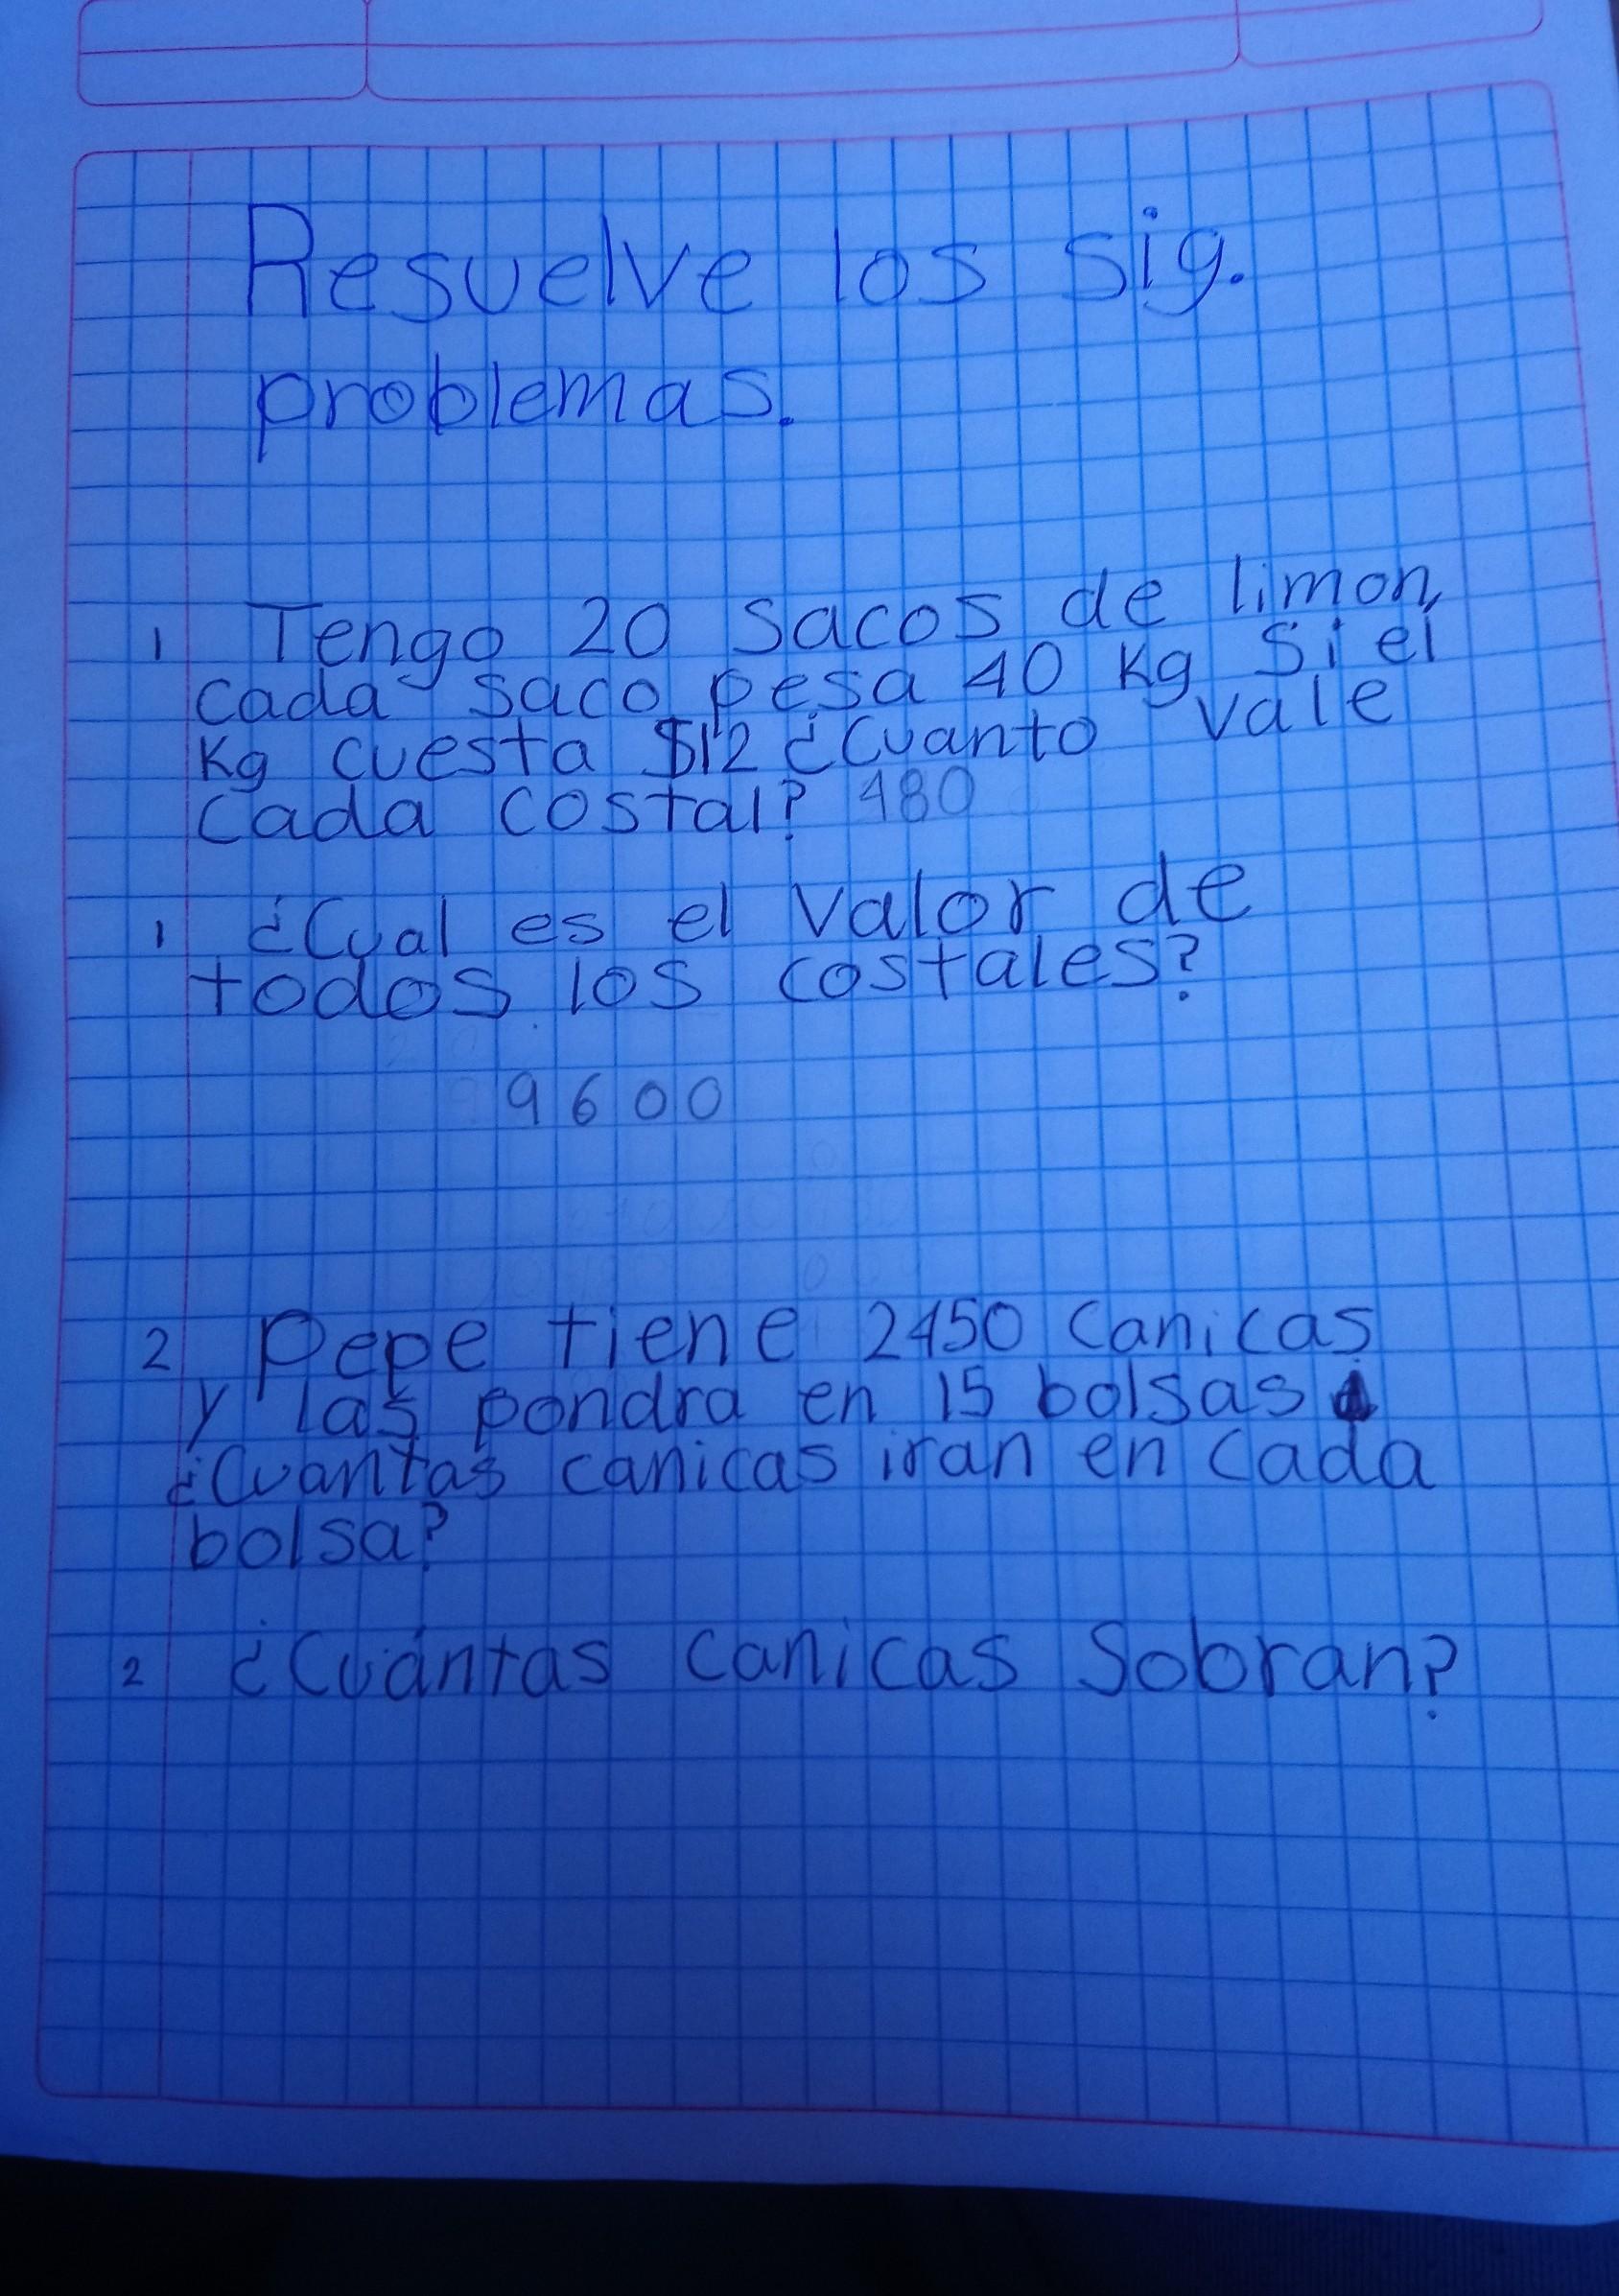 Resuelve los sig.
problemas.
1 Tengo 20 sacos de limon,
cada saco pesa 40 Kg Si el
Kg cuesta $12 ¿Cuanto vale
cada costal? 480
1 ¿Cual es el valor de
todos los costales?
9600
2 Pepe tiene 2450 canicas
y las pondra en 15 bolsas
¿Cuantas canicas iran en cada
bolsa?
2 ¿Cuántas canicas Sobran?